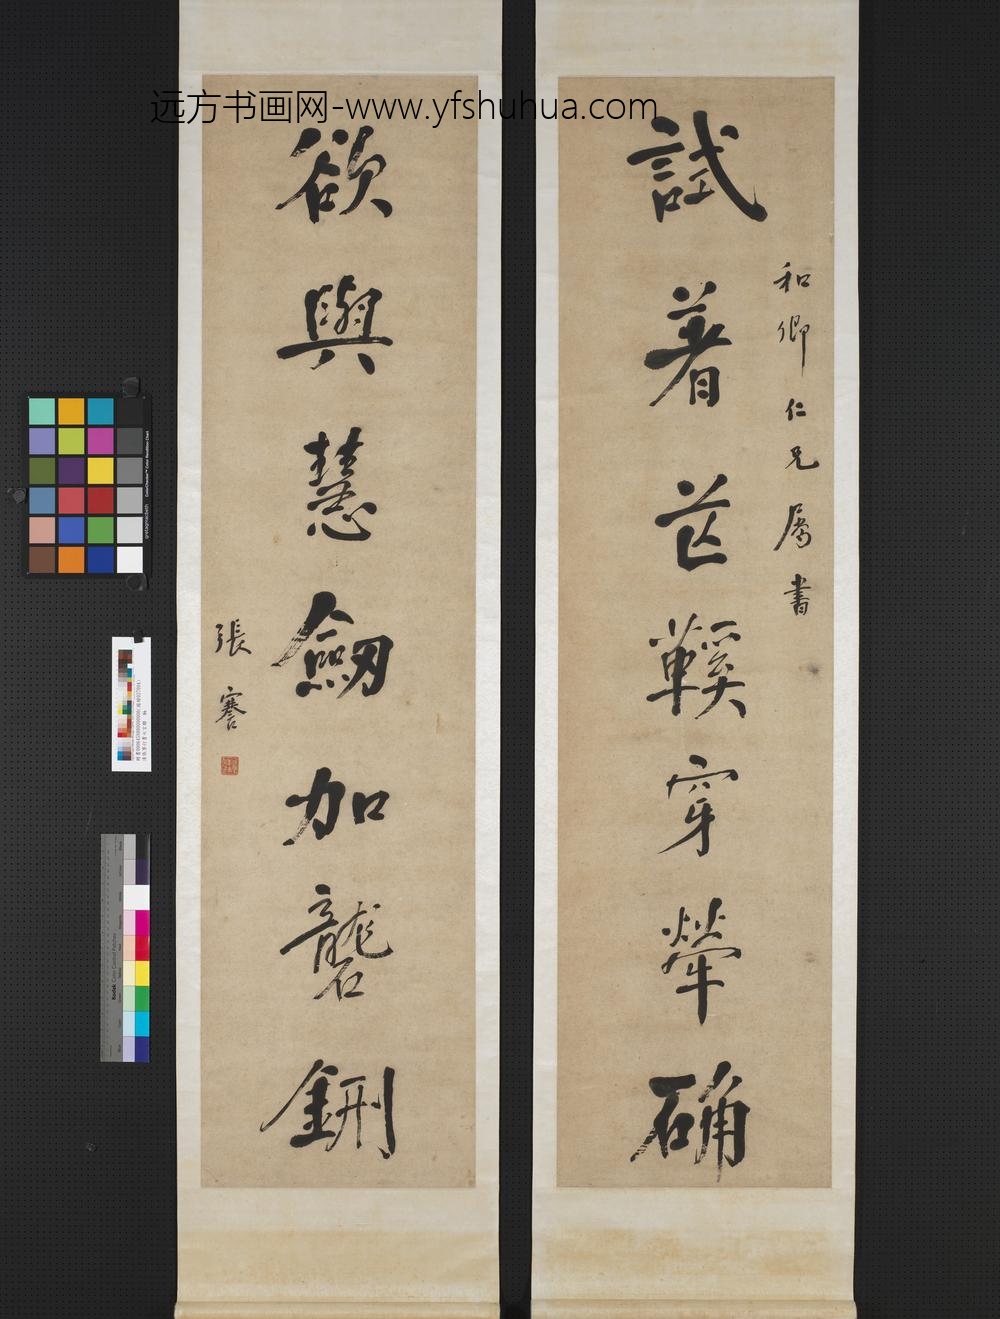 远方书画网-www.yfshuhua.com
和卿仁兄属書
試著芒鞵穿犖确
欲與慧劒加礲鉶
張謇